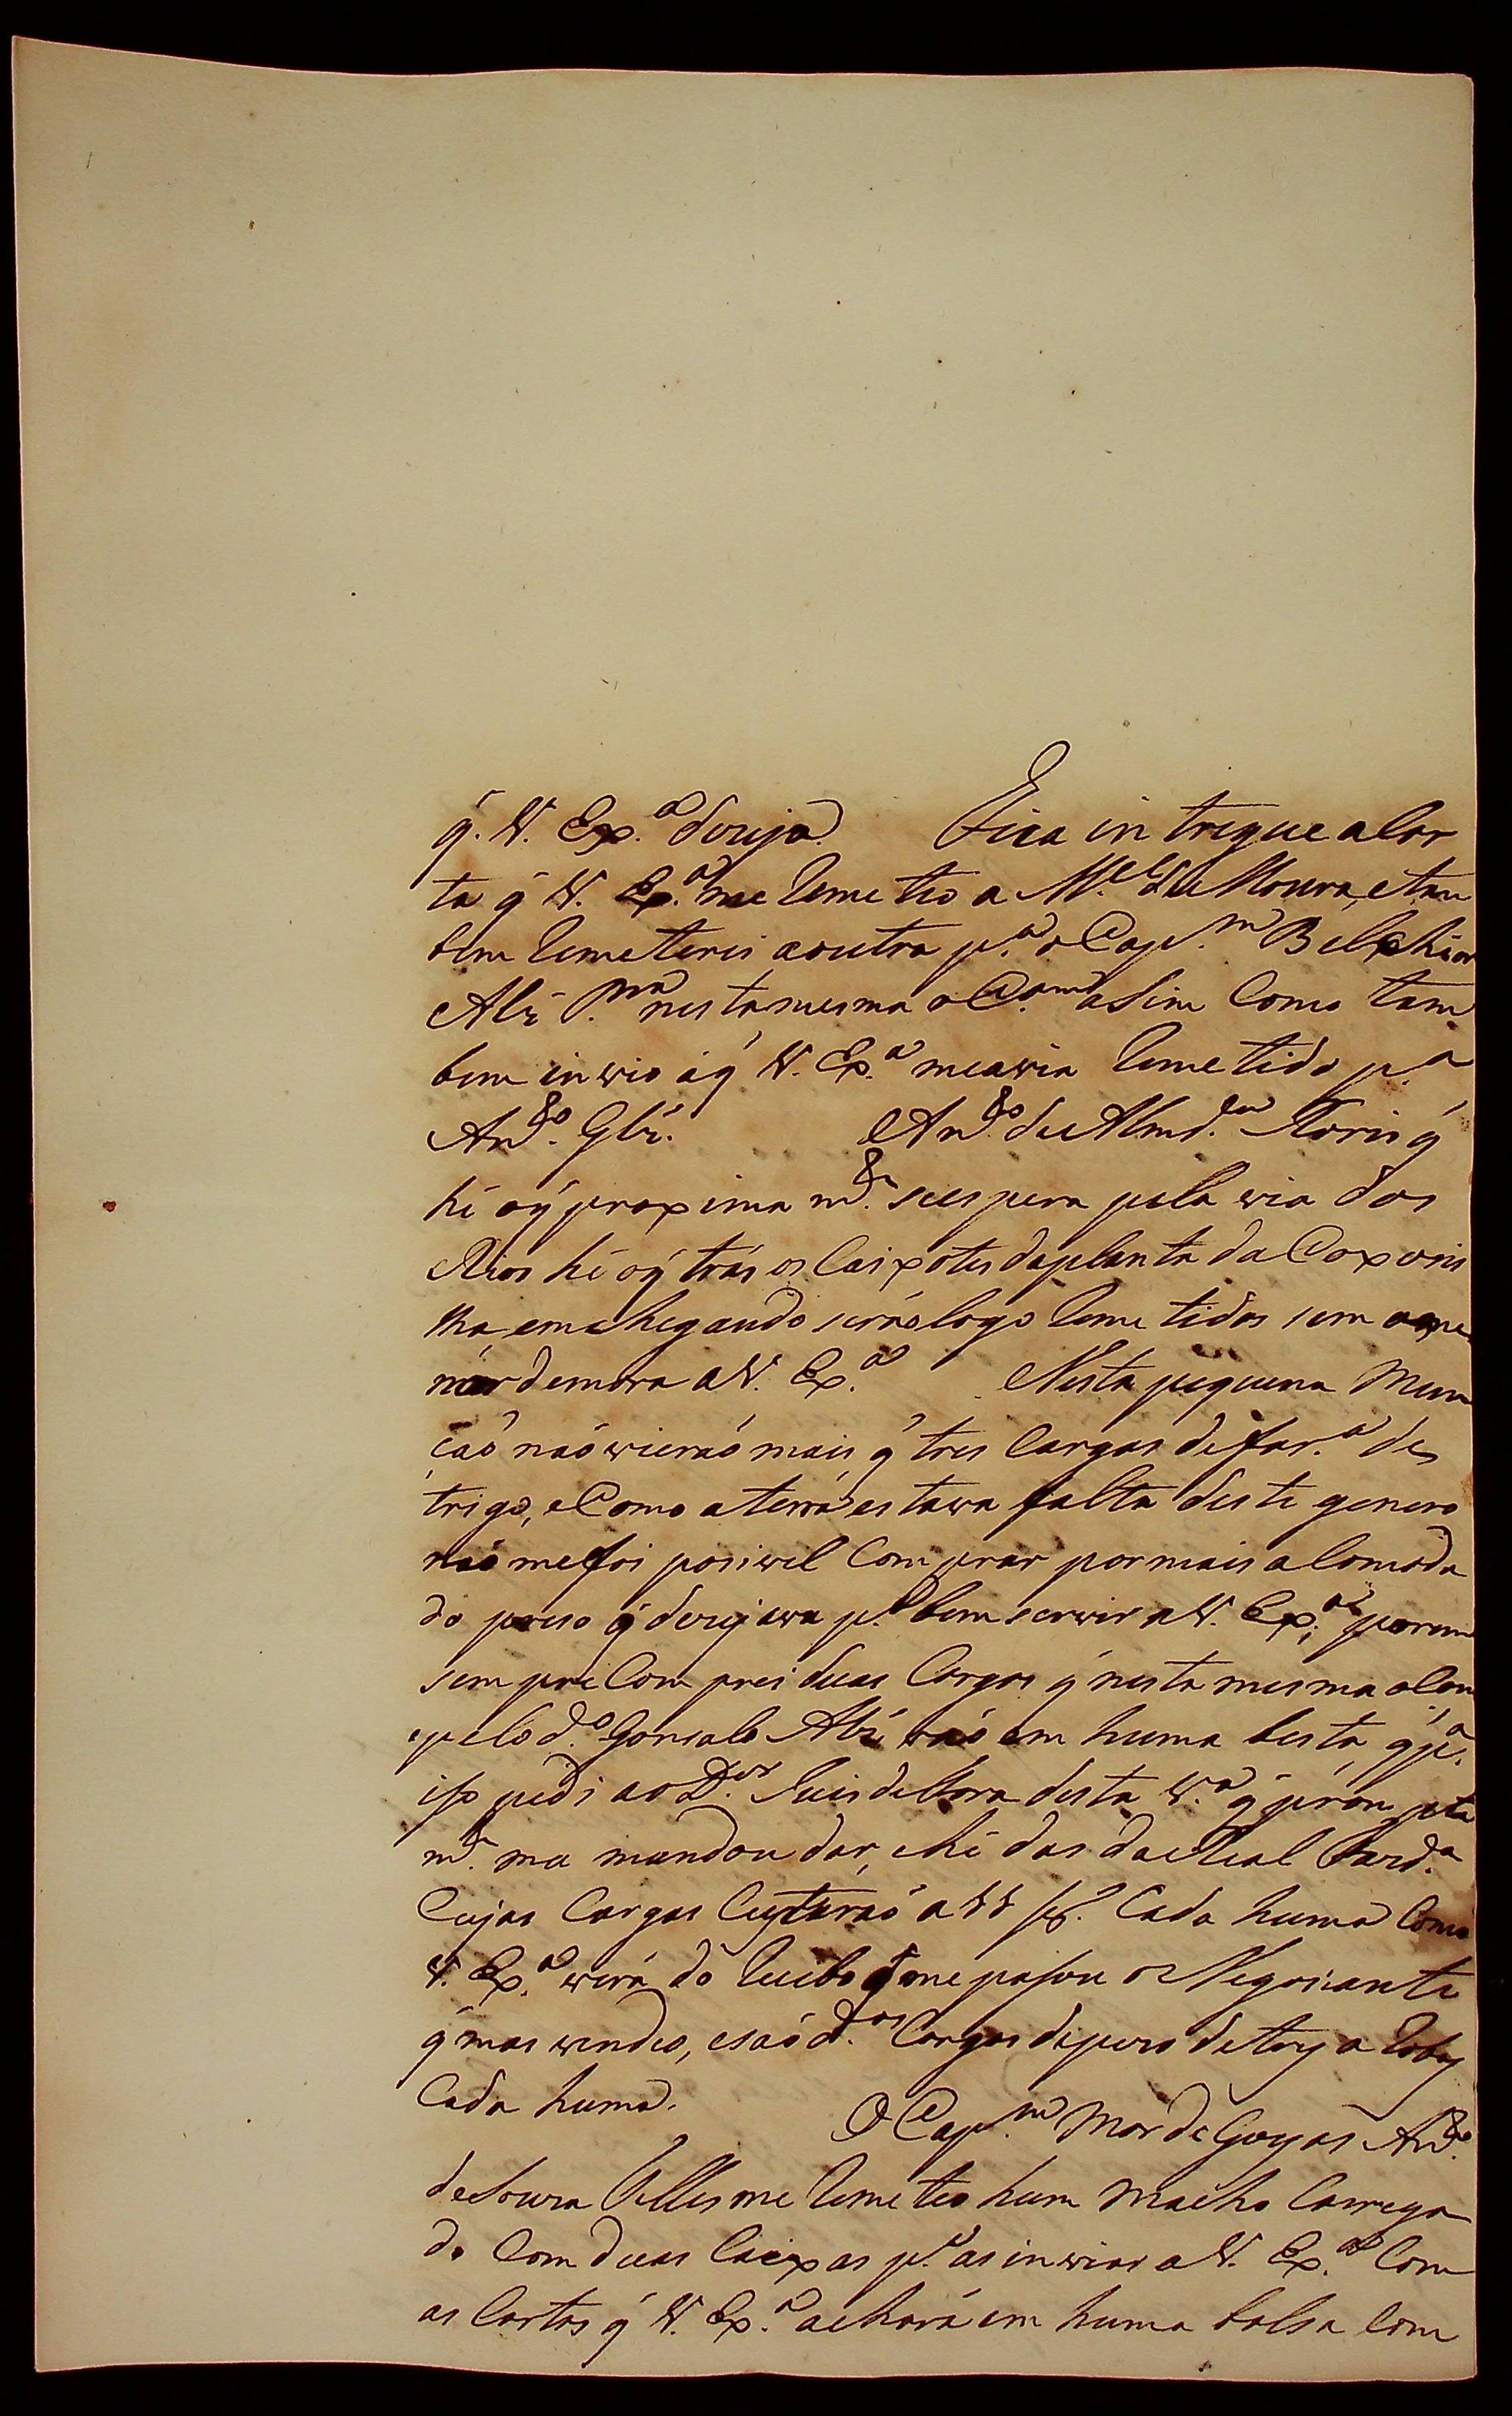 q̃. V. Ex.ª dezeja. Fica intregue a Car
ta q̃ V. Ex.ª me Remeteo a M.el de Moura, e tan
bem Remeterei a outra p.ª o Cap.m Belchior
Alz̃ P.ra nesta mesma asim Como tam
bem inwio a q̃ V. Ex.ª me awia Remetido p.ª
An.to Glz̃. An.to de Almd.ª q̃
hé o q̃ proxima m.te se espera pela wia dos
Rios hé o q̃ trás os Caixotes da planta da
nha, em chegando seráo logo Remetidos sem a pe
nór demora a V. Ex.ª Nesta pequena Mun
çaó naó wieraó mais q̃ tres Cargas de far.ª de
trigo, e Como a terra estawa falta deste genero
naó me foi posiwel Comprar por mais aComoda
do preso q̃ dezejawa p.ª bem serwir a V. Ex.ª; porem
sempre Comprei duas Cargas q̃ nesta mesma
pelo d.º Gonsalo Alz̃ wáo em huma besta, q̃ p.ª
iso pedi ao D.or Juis de Fora desta V.ª q̃ prompta
m.te ma mandou dar, e hé das da Real Fazd.ª
Cujas Cargas Custaraó a Cada huma Como
V. Ex.ª wera do Recibo q̃ me pasou o Negociante
q̃ mas wendeo, e saó d.as Cargas de pezo de a Robas
Cada huma. O Cap.m Mor de Goyas An.to
de Souza Telles me Remeteo hum Macho Carrega
do Com duas Caixas p.ª as inwiar a V. Ex.ª Com
as Cartas q̃ V. Ex.ª achará em huma bolsa Com